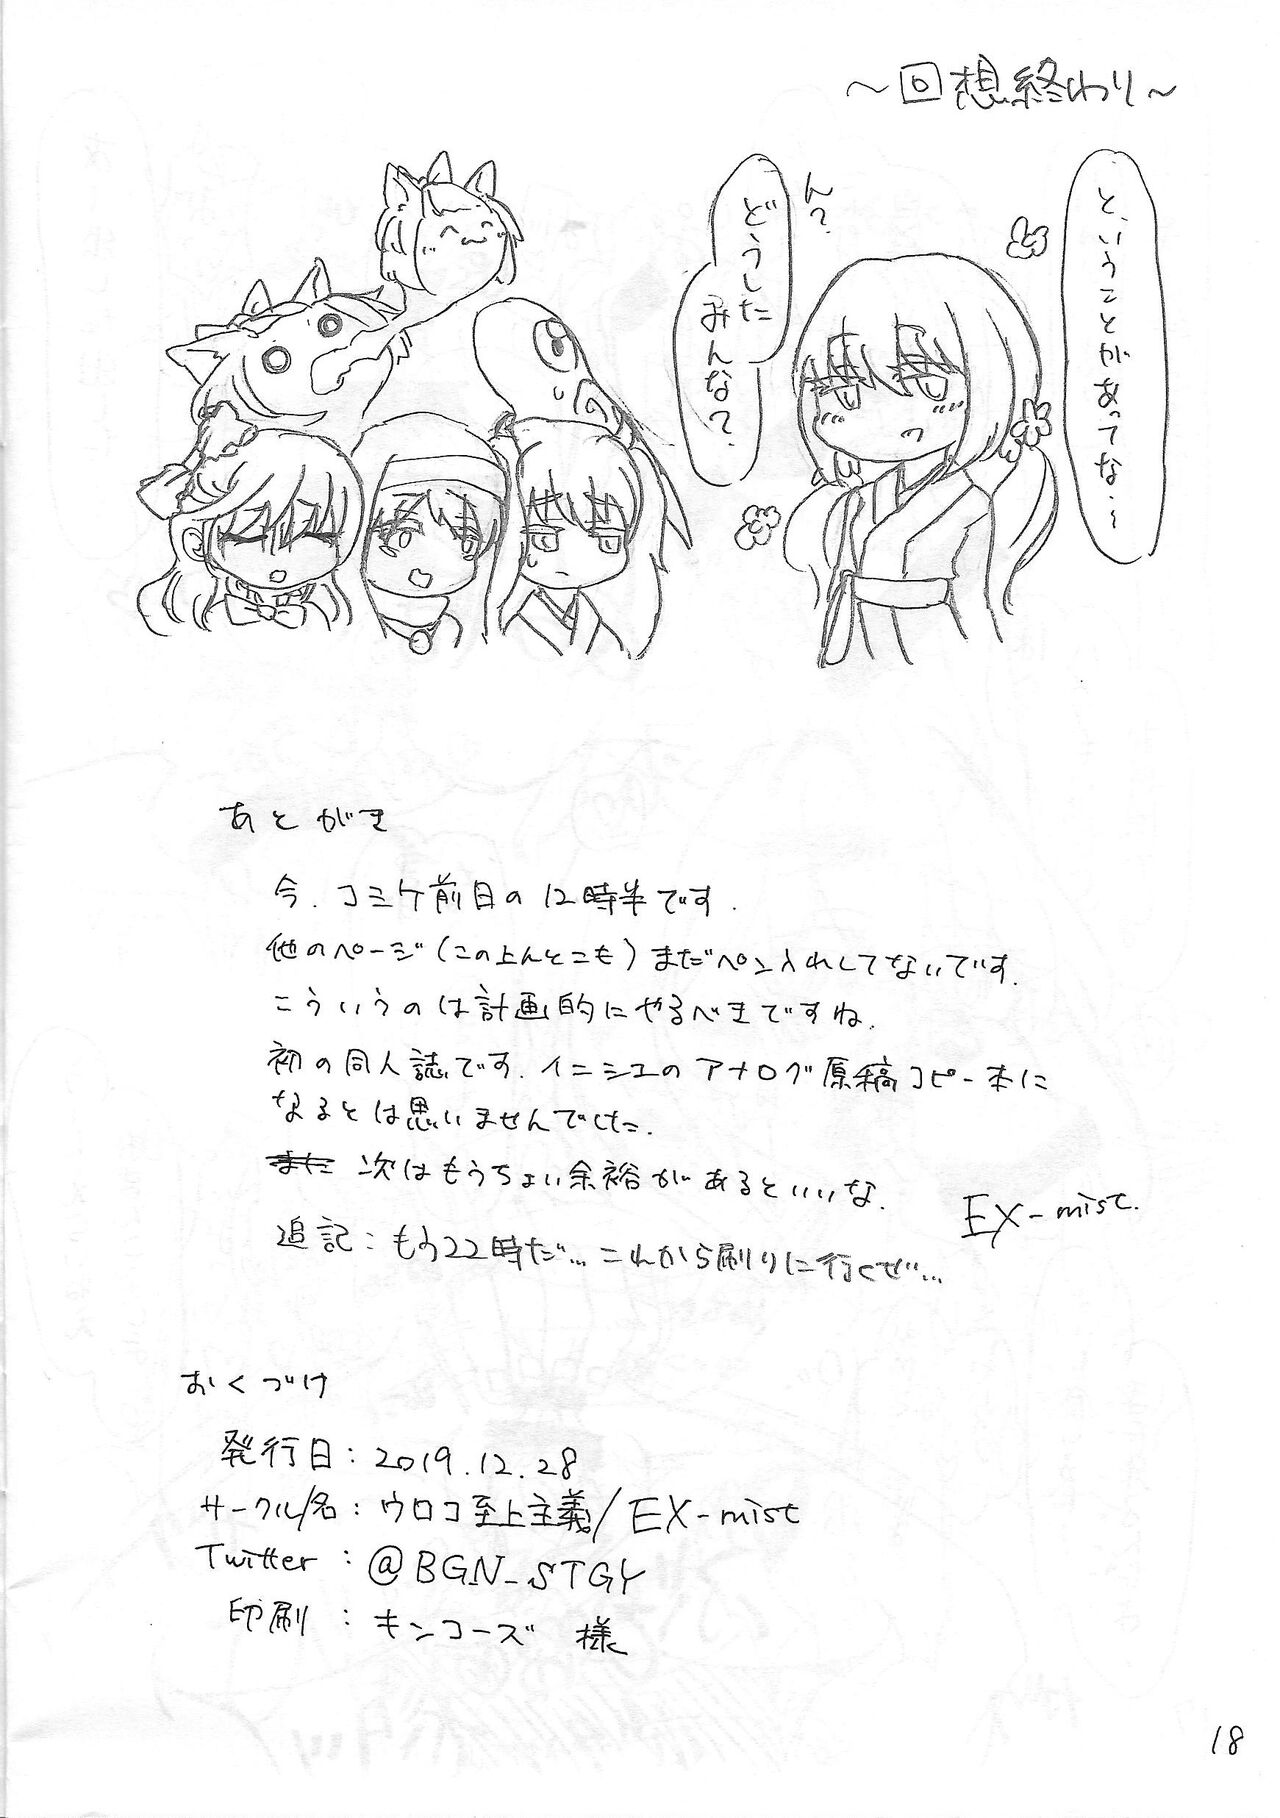 ～回想終わり～
と、いうことがあってな～
ん？
どうした
みんな？
あとがき
今、コミケ前日の12時半です.
他のページ(この上んとこも)まだペン入れしてないです.
こういうのは計画的にやるべきですね.
初の同人誌です.イニシエのアナログ原稿コピー本に
なるとは思いませんでした.
また 次はもうちょい余裕があるといいな.
EX-mist.
追記:もう22時だ…これから刷りに行くぜ…
おくづけ
発行日:2019.12.28
サークル/名:ウロコ至上主義/EX-mist
Twitter:@BGN_STGY
印刷:キンコーズ 様
18